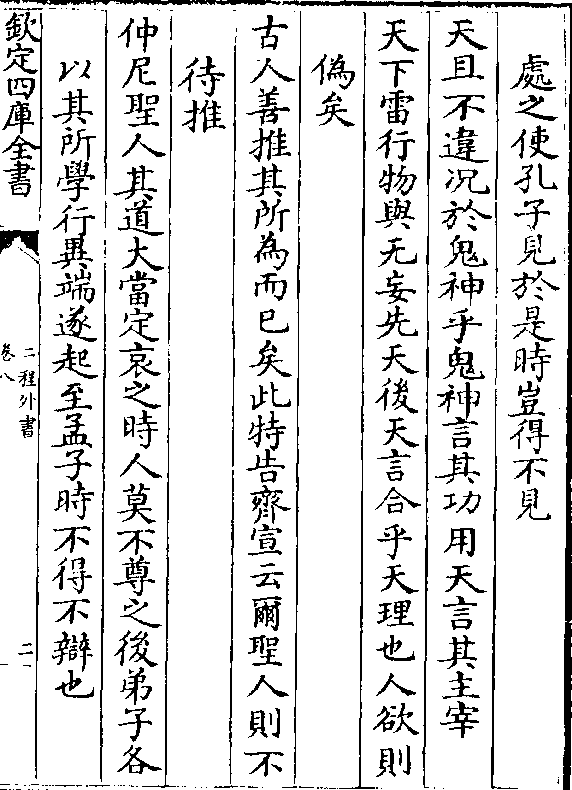 處之使孔子見於是時豈得不見
天且不違况於鬼神乎鬼神言其功用天言其主宰
天下雷行物與无妄先天後天言合乎天理也人欲則
偽矣
古人善推其所為而已矣此特告齊宣云爾聖人則不
待推
仲尼聖人其道大當定哀之時人莫不尊之後弟子各
以其所學行異端遂起至孟子時不得不辯也
欽定四庫全書
二程外書
卷八
二